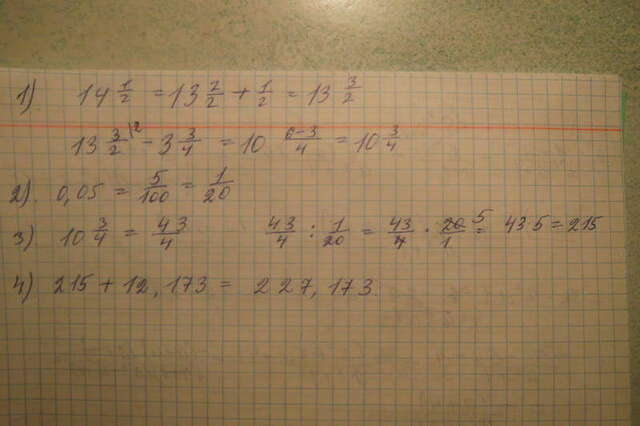 1) 14 1/2 = 13 2/2 + 1/2 = 13 3/2
13 3/2 |2 - 3 3/4 = 10 6-3/4 = 10 3/4
2). 0,05 = 5/100 = 1/20
3) 10 3/4 = 43/4 43/4 : 1/20 = 43/4 · 20/1 5 = 43 5 = 215
4) 215 + 12,173 = 227,173.